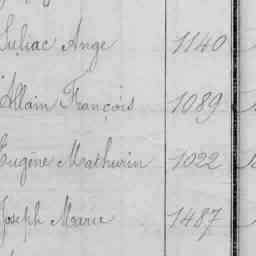 Suliac Ange 1140
Allain François 1089
Eugène Mathurin 1022
Joseph Marie 1487